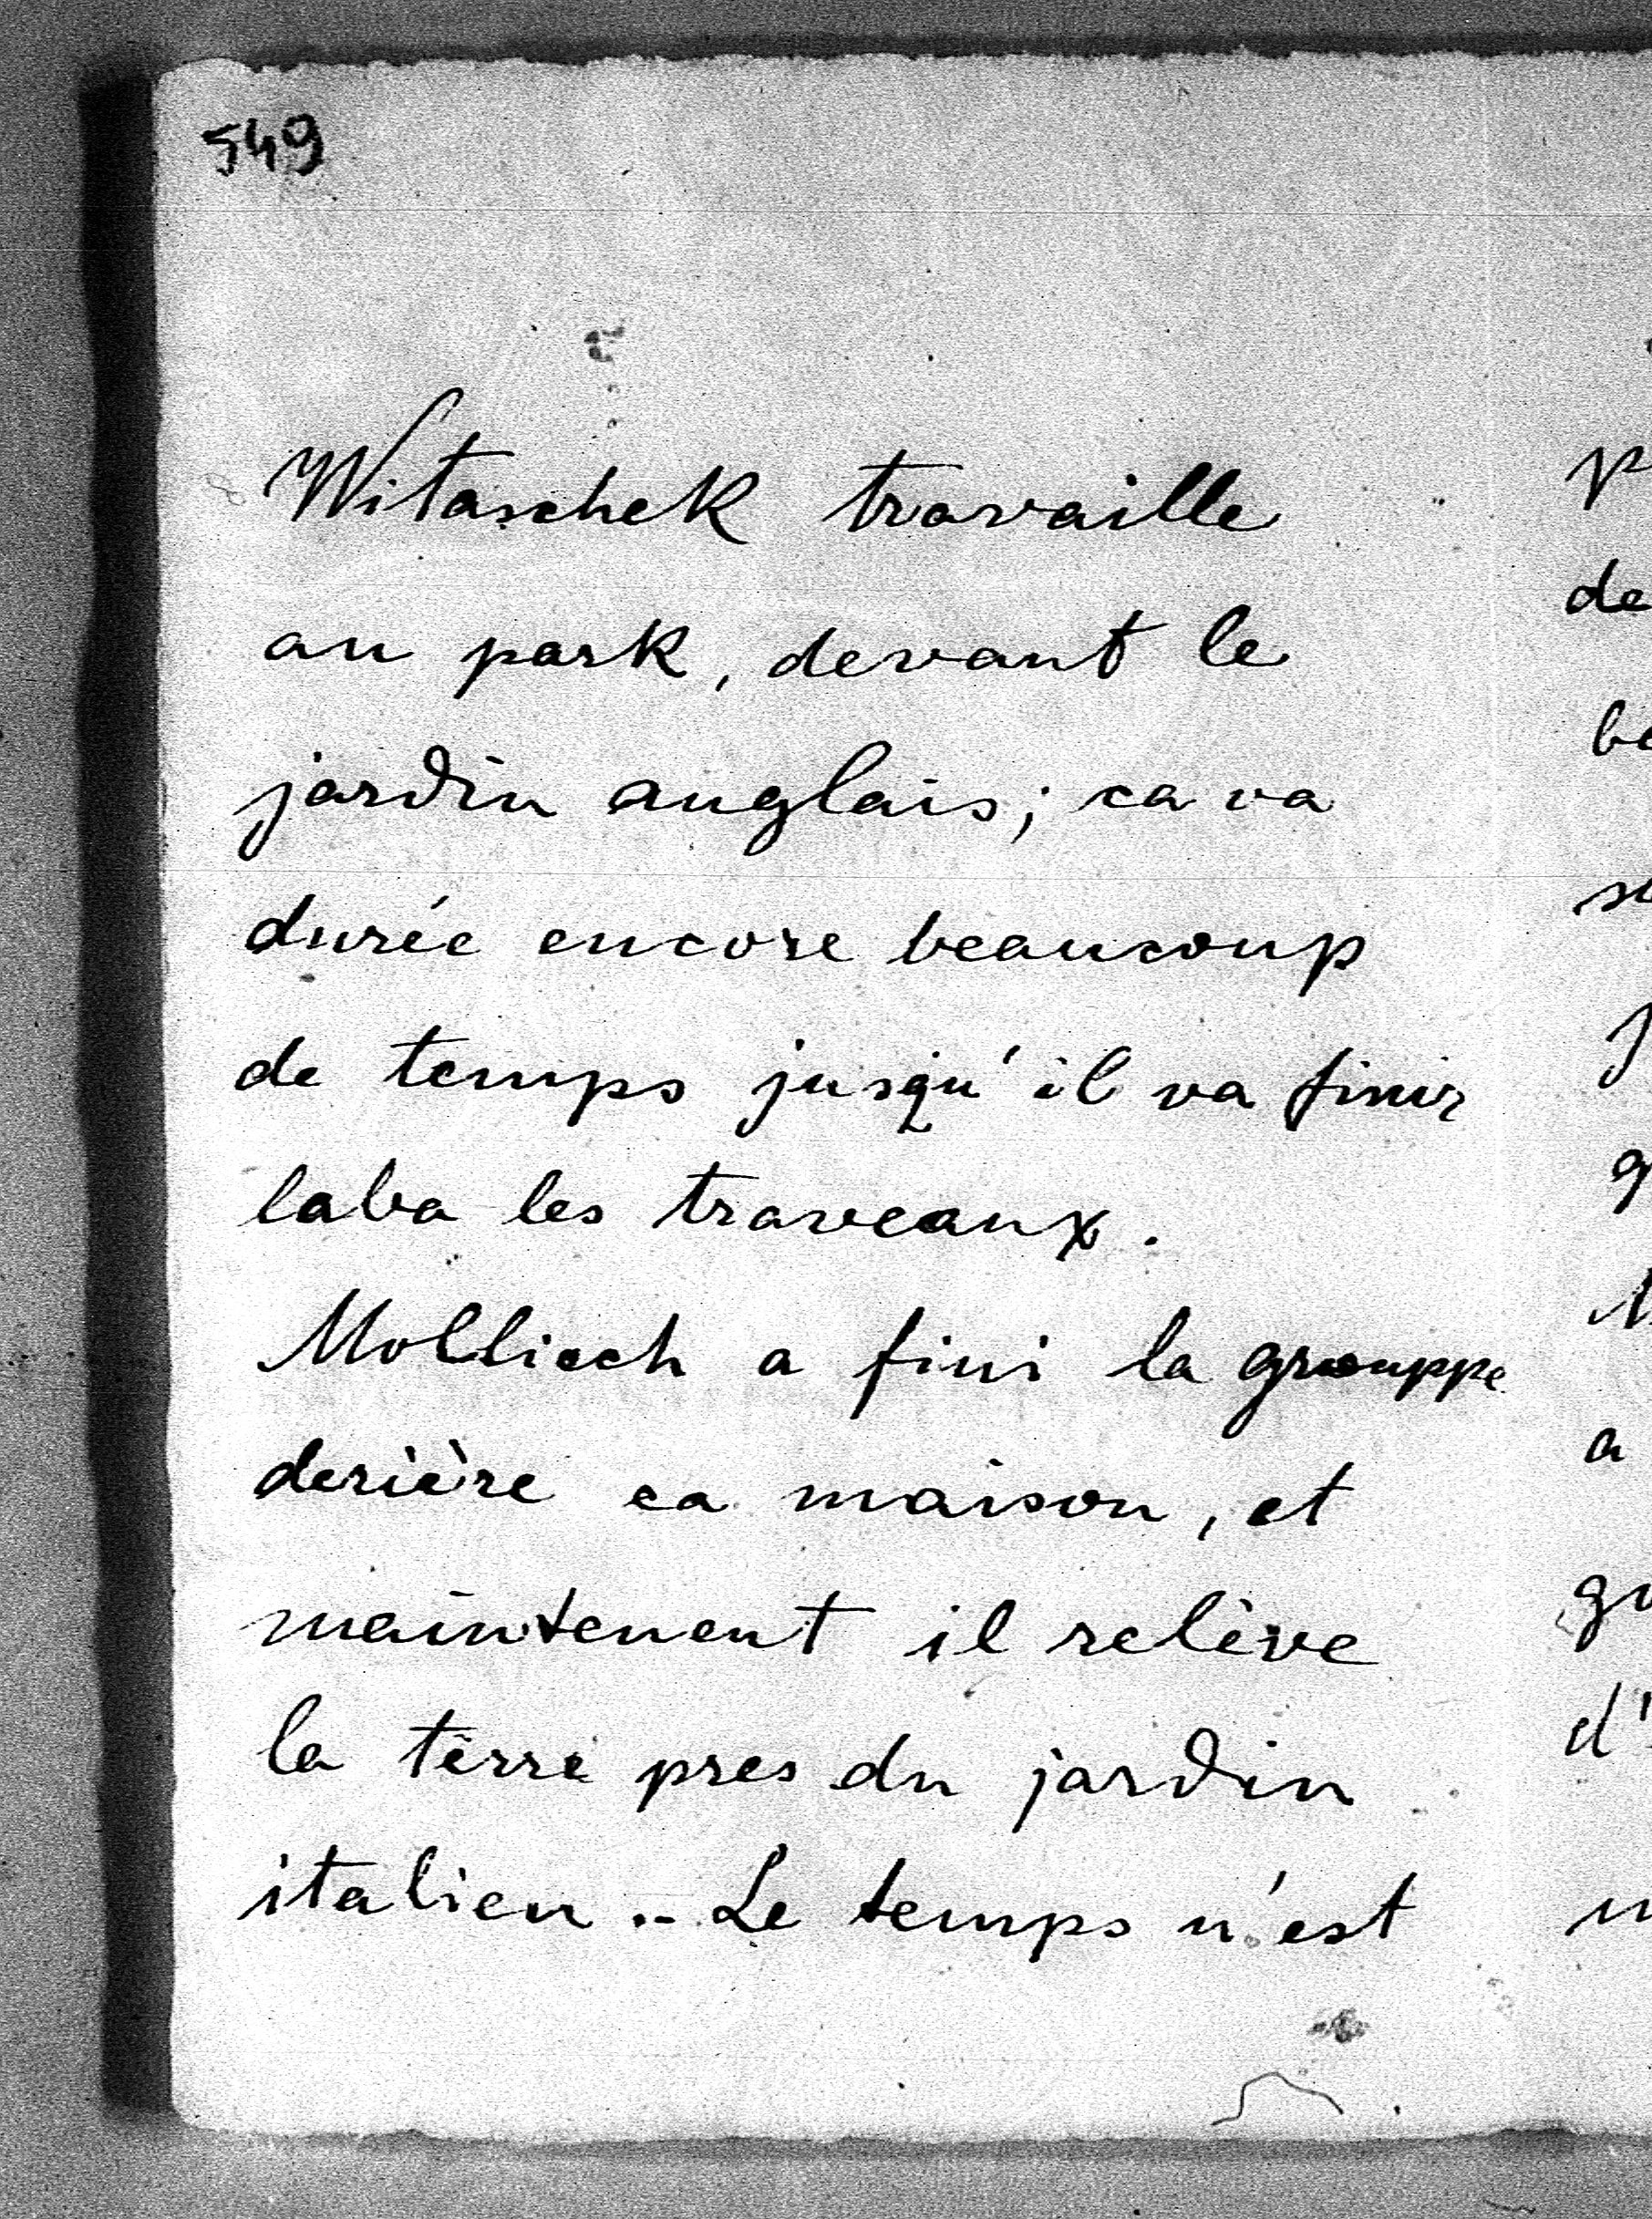 549
Witaschek travaille
au park, devant le
jardin anglais; ca va
durée encore beaucoup
de temps jusqu'il va finir
laba les traveaux.
a fini la grouppe
derière ca maison, et
maintenent il relève
la terre pres du jardin
italien.. Le temps n'est